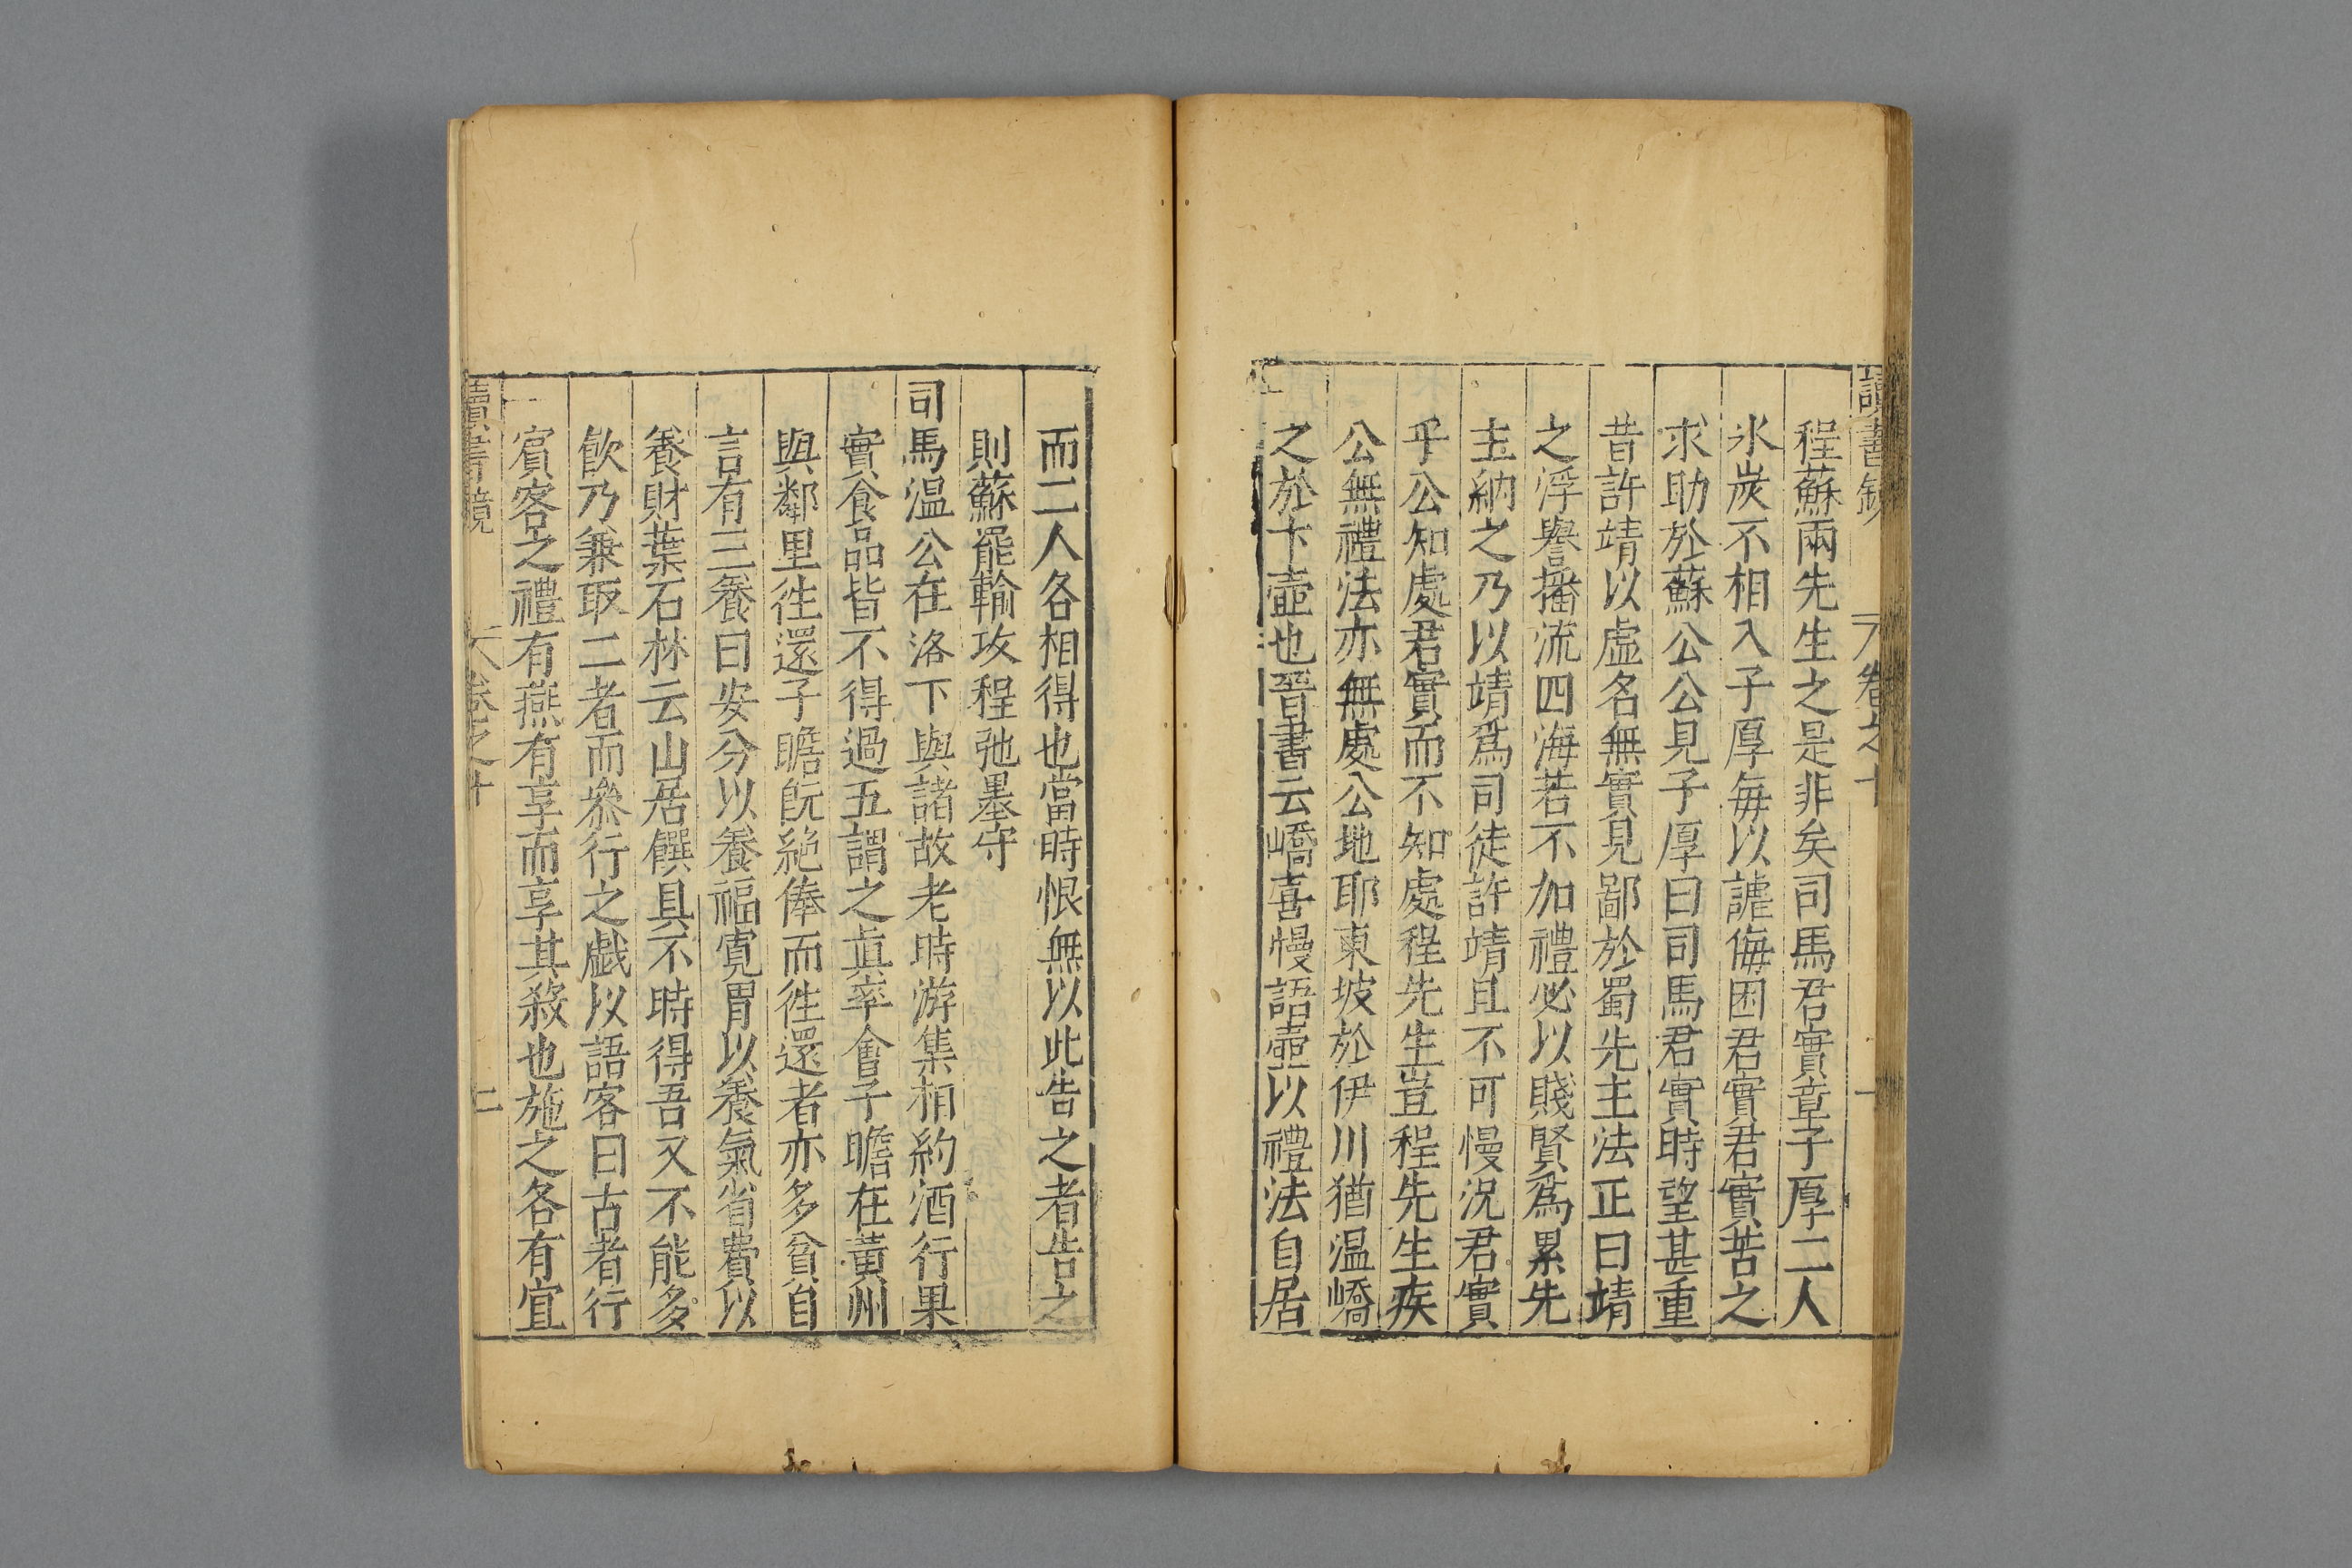 讀書鏡 卷之十 一
程蘇兩先生之是非矣司馬君實章子厚二人
氷炭不相入子厚每以謔侮困君實君實苦之
求助於蘇公公見子厚曰司馬君實時望甚重
昔許靖以虛名無實見鄙於蜀先主法正曰靖
之浮譽播流四海若不加禮必以賤賢爲累先
主納之乃以靖爲司徒許靖且不可慢況君實
乎公知處君實而不知處程先生豈程先生疾
公無禮法亦無處公地耶東坡於伊川猶温嶠
之於卞壼也晉書云嶠喜慢語壼以禮法自居
而二人各相得也當時恨無以此告之者告之
則蘇罷輸攻程弛墨守
司馬温公在洛下與諸故老時游集相約酒行果
實食品皆不得過五謂之眞率會子瞻在黃州
與鄰里往還子瞻旣絶俸而往還者亦多貧自
言有三養曰安分以養福寬胃以養氣省費以
養財葉石林云山居饌具不時得吾又不能多
飮乃兼取二者而叅行之戱以語客曰古者行
賓客之禮有燕有享而享其殺也施之各有宜
讀書鏡 卷之十 二